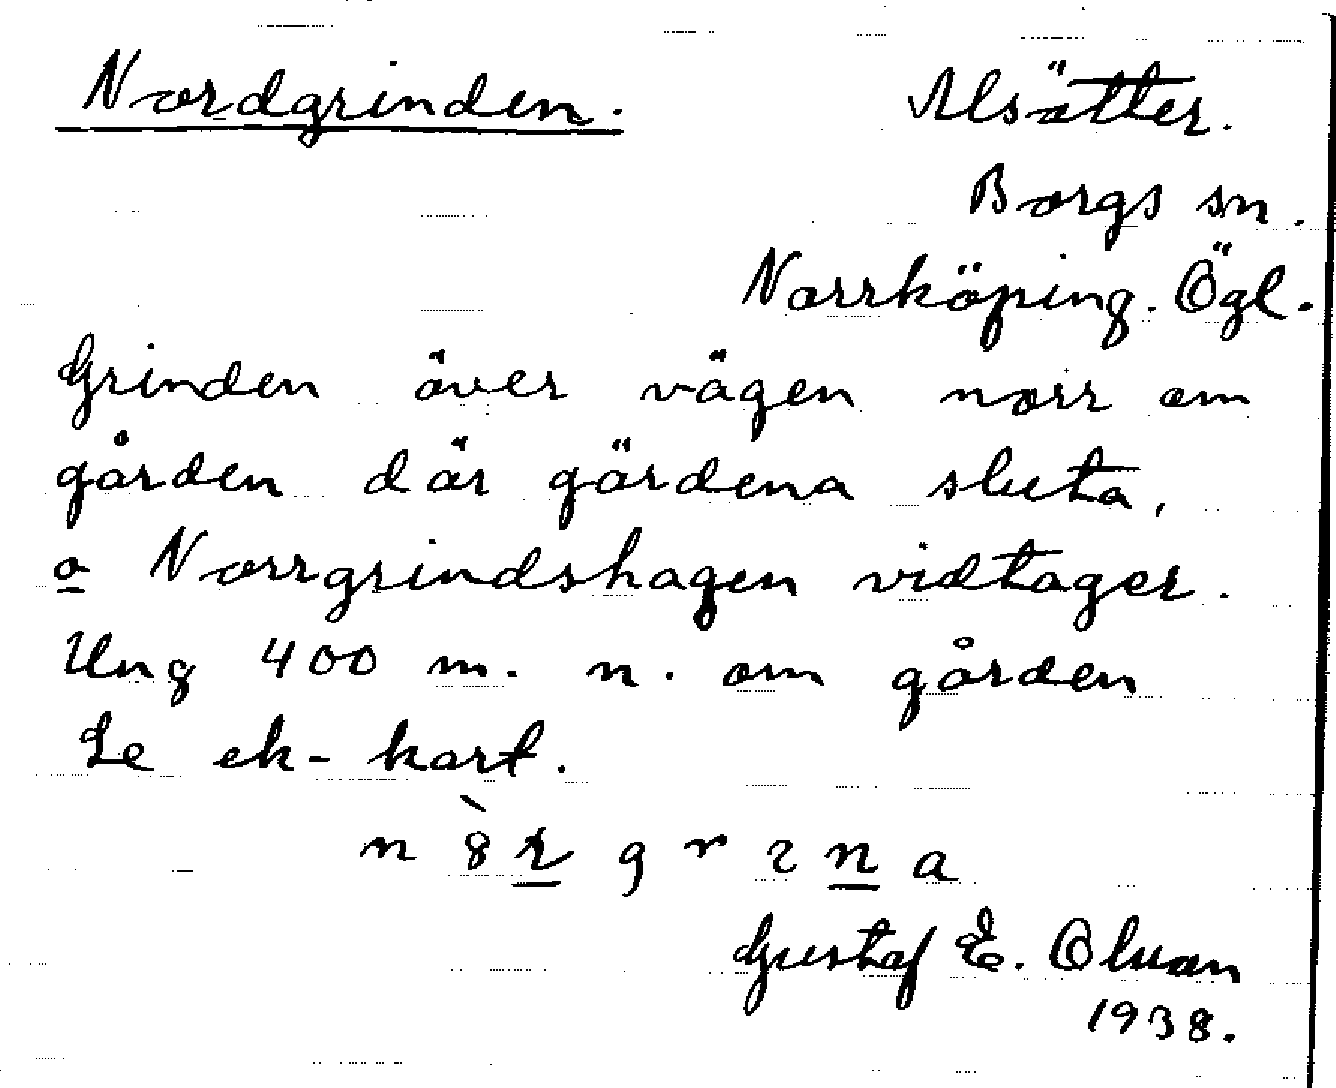 Nordgrinden.
Alsätter.
Borgs sn.
Norrköping. Ögl.
Grinden över vägen norr om
gården där gärdena sluta,
o Norrgrindshagen vidtager.
Ung 400 m. n. om gården
Se ek-kart.
Gustaf E. Olson
1938.